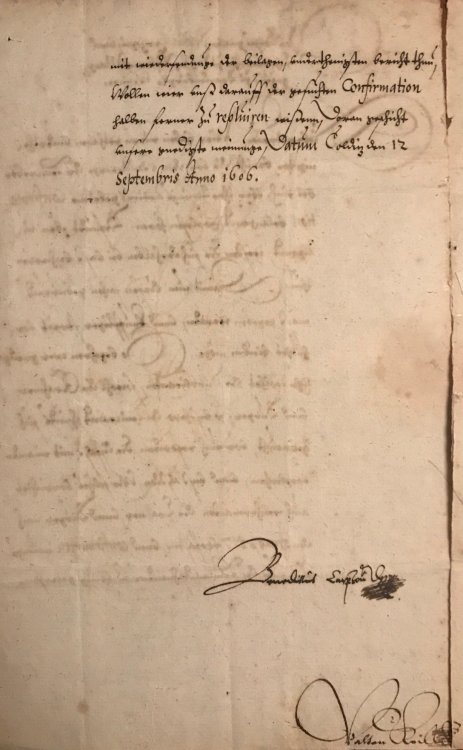 mit wiedersendunge der beilagen, underthenigsten bericht thun,
Wollen wier unß darauff der gesuchten Confirmation
halben ferner zu resoluiren wißenn, Doran geschicht
unsere gnedigste meinunge, Datum Colditz den 12
Septembris Anno 1606.
Benedictus Carpzou D